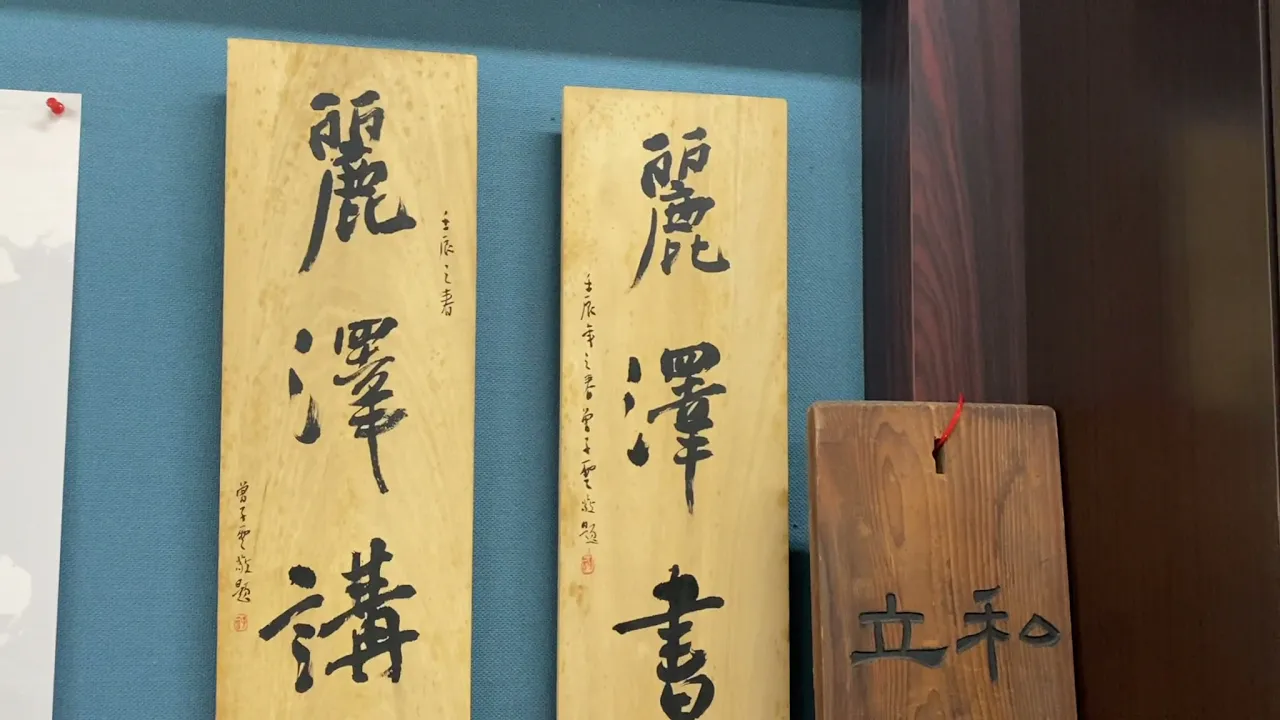 麗澤講
壬辰之春
曾子雲敬題
麗澤書
壬辰年之春曾子雲敬題
立和